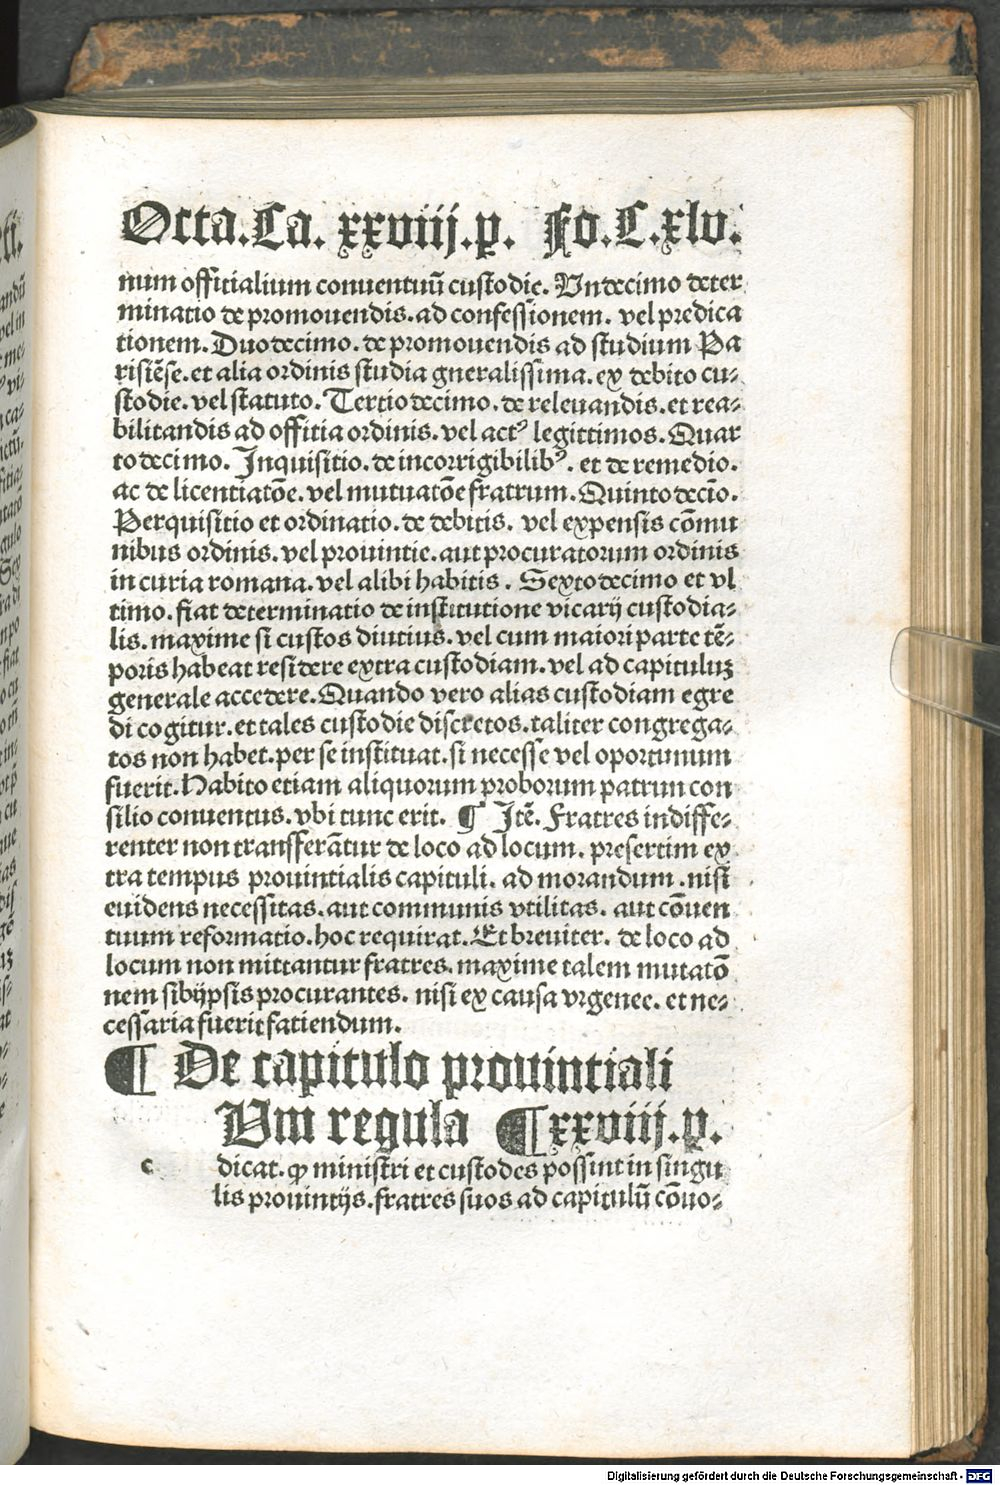 Octa.Ca. xxviij.p. Fo.C.xlv.
num offitialium conuentuū custodie. Vndecimo deter
minatio de promouendis.ad confessionem. vel predica
tionem.Duodecimo.de promouendis ad studium Pa
risiēse.et alia ordinis studia gneralissima.ex debito cu-
stodie.vel statuto. Tertiodecimo.de releuandis.et rea-
bilitandis ad offitia ordinis.vel actꝰ legittimos.Quar
todecimo. Inquisitio.de incorrigibilibꝰ. et de remedio.
ac de licentiatōe.vel mutuatōe fratrum.Quintodecīo.
Perquisitio et ordinatio.de debitis. vel expensis cōmu
nibus ordinis.vel prouintie.aut procuratorum ordinis
in curia romana.vel alibi habitis. Sextodecimo et vl
timo.fiat determinatio de institutione vicarij custodia-
lis.maxime si custos diutius.vel cum maiori parte tē-
poris habeat residere extra custodiam.vel ad capituluꝫ
generale accedere.Quando vero alias custodiam egre
di cogitur.et tales custodie discretos.taliter congrega-
tos non habet.per se instituat.si necesse vel oportunum
fuerit.Habito etiam aliquorum proborum patrun con
silio conuentus.vbi tunc erit. ¶ Itē. Fratres indiffe-
renter non transferātur de loco ad locum. presertim ex
tra tempus prouintialis capituli. ad morandum .nisi
euidens necessitas.aut communis vtilitas. aut cōuen
tuum reformatio.hoc requirat.Et breuiter. de loco ad
locum non mittantur fratres.maxime talem mutatō
nem sibijpsis procurantes. nisi ex causa vrgenec. et ne-
cessaria fuerit fatiendum.
¶ De capitulo prouintiali
Vm regula ¶ xxviij.p.
c dicat.ꝙ ministri et custodes possint in singu
lis prouintijs.fratres suos ad capitulū cōuo-
Digitalisierung gefördert durch die Deutsche Forschungsgemeinschaft - DFG